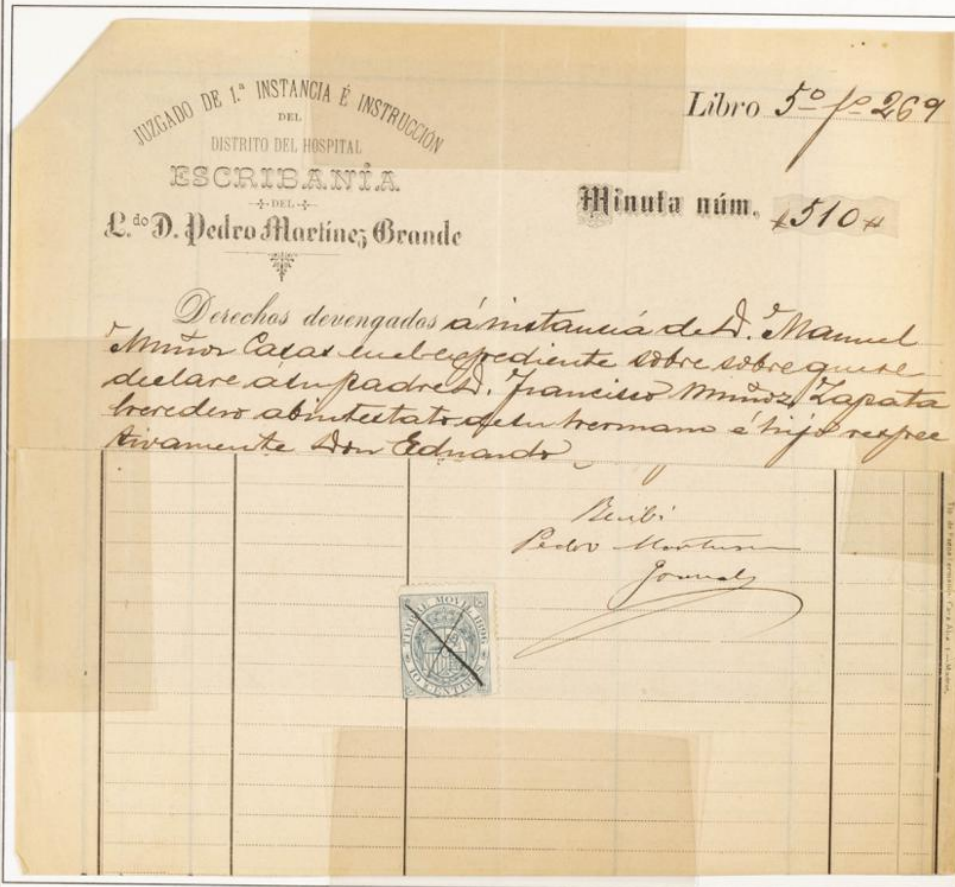 JUZGADO DE 1.ª INSTANCIA É INSTRUCCIÓN
DEL
DISTRITO DEL HOSPITAL
ESCRIBANÍA
DEL
L.do D. Pedro Martínez Grande
Libro 5º fº 269
Minuta núm. 510
Derechos devengados á instancia de D. Manuel
Muñoz Casas en el expediente sobre sobre que se
declare á su padre D. Francisco Muñoz Zapata
heredero abintestato de su hermano é hijo respec
tivamente Don Eduardo
Recibí
Pedro Martinez
TIMBRE MOVIL 1896
10 CENTIMOS